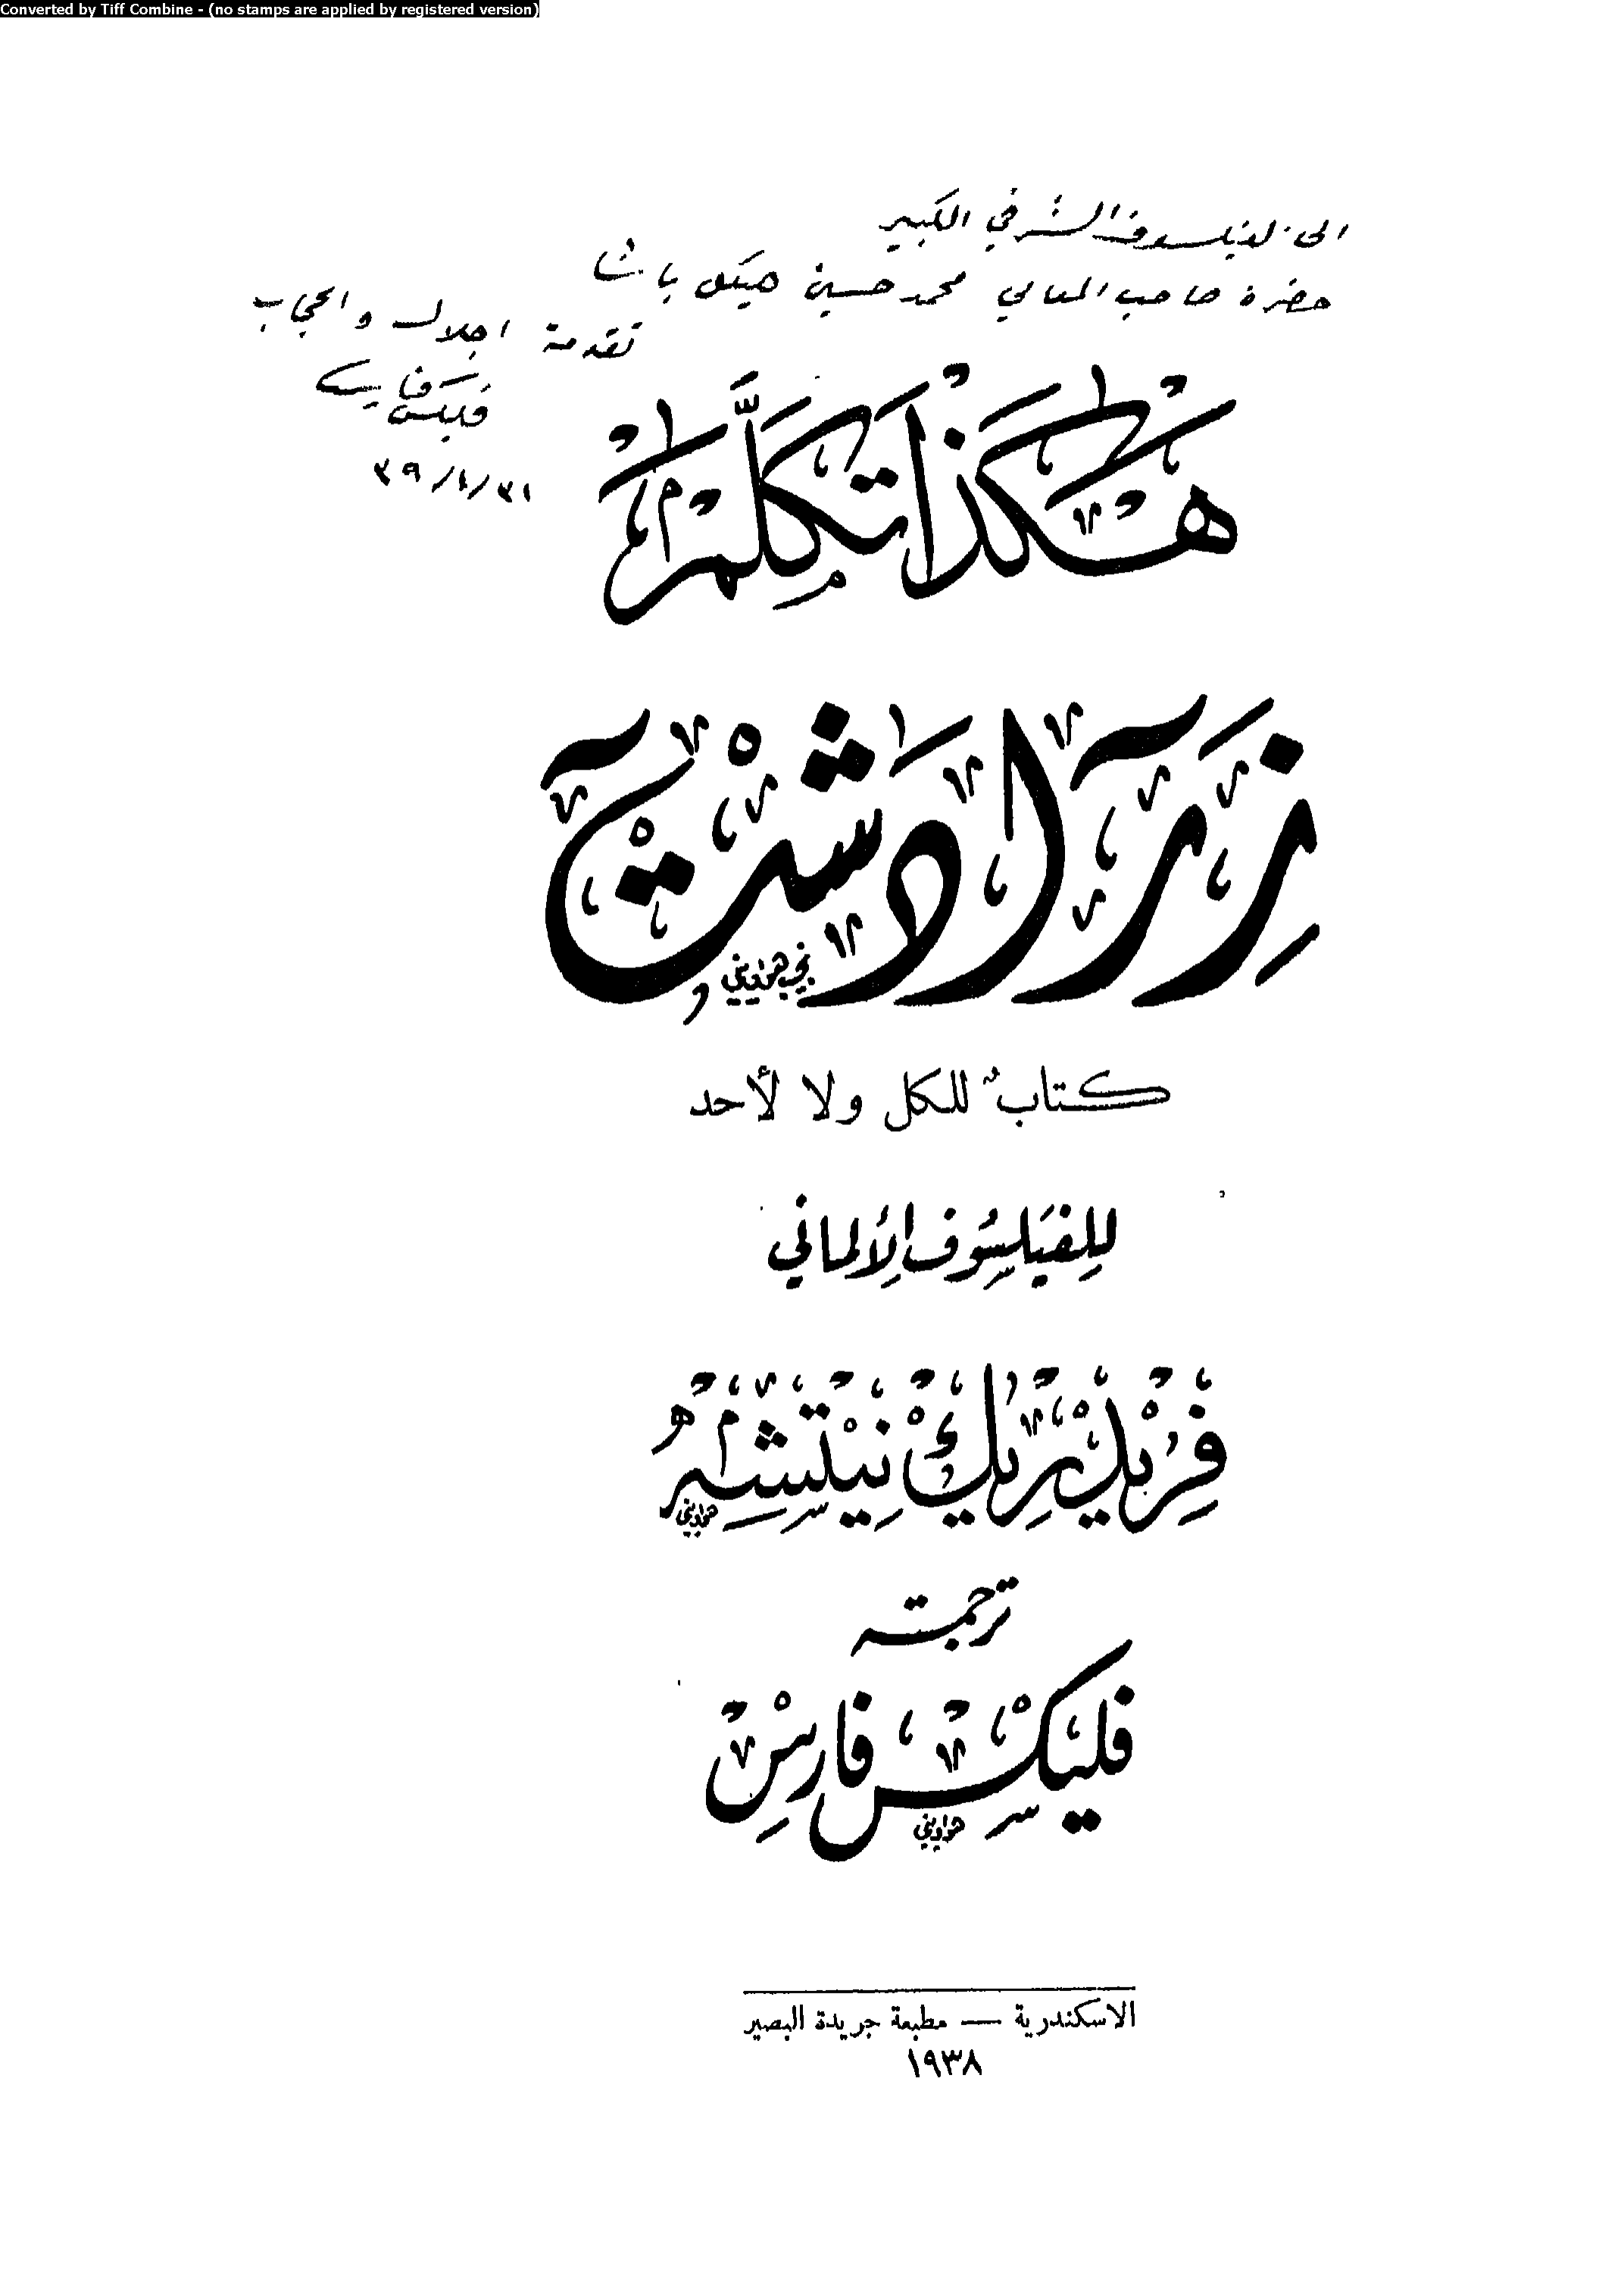 Converted by Tiff Combine - (no stamps are applied by registered version)
الى الفيلسوف الشرقي الكبير
حضرة صاحب المعالي محمد حسين هيكل باشا
تقدمة اجلال واعجاب
فليكس فارس
هٰكَذَا تَكَلَّمَ
زَرَادَشْت
نجيب هواويني
كتابٌ للكل ولا لأحد
للفيلسوف الألماني
فِرِيْدِرِيك نِيْتْشِه
هواويني
ترجمة
فليكس فارس
هواويني
الاسكندرية — مطبعة جريدة البصير
١٩٣٨